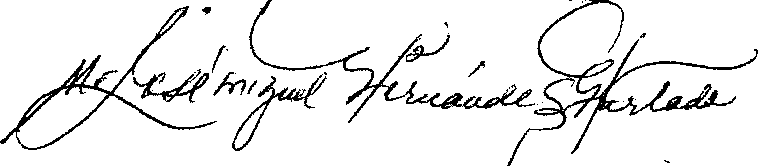 Mc José Miguel Hernández Hurtado